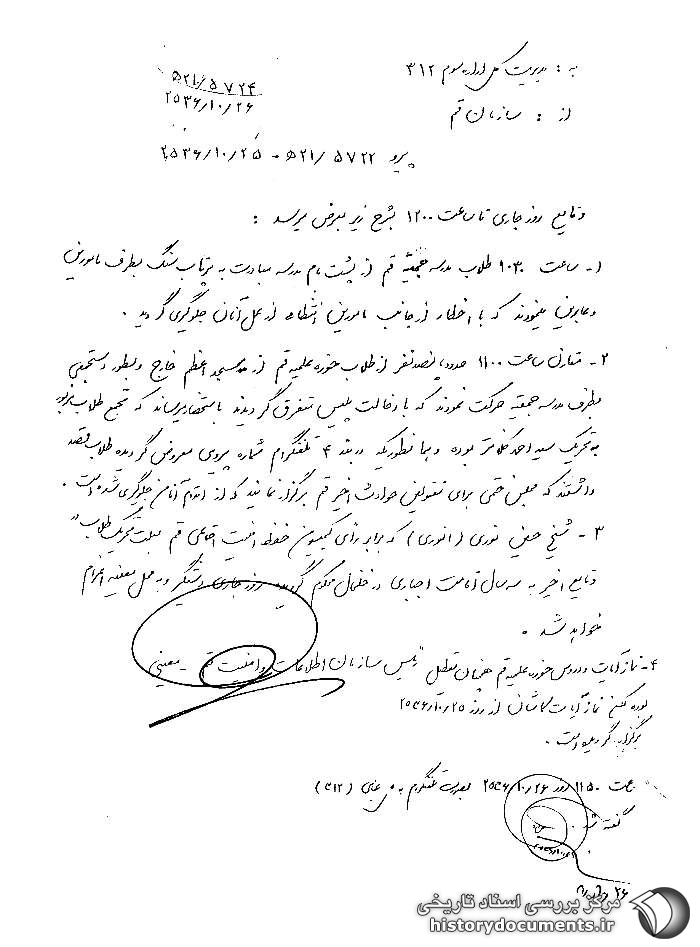 به : مدیریت کل اداره سوم ۳۱۲
از : سازمان قم
۵۲۱/۵۷۲۴
۲۵۳۶/۱۰/۲۶
پیرو ۵۲۱/۵۷۲۲ - ۲۵۳۶/۱۰/۲۵
وقایع روز جاری تا ساعت ۱۲۰۰ بشرح زیر بعرض میرسد :
۱- ساعت ۱۰۳۰ طلاب مدرسه حجتیه قم از پشت بام مدرسه مبادرت به پرتاب سنگ بطرف مامورین
وعابرین مینمودند که با اخطار از جانب مامورین انتظامی از عمل آنان جلوگیری گردید .
۲- مقارن ساعت ۱۱۰۰ حدود پانصد نفر از طلاب حوزه علمیه قم از مسجد اعظم خارج و بطور دستجمعی
بطرف مدرسه حجتیه حرکت نمودند که با دخالت پلیس متفرق گردیدند باستحضار میرساند که تجمع طلاب مزبور
به تحریک سید احمد کلانتر بوده و همانطوریکه در بند ۴ تلفنگرام شماره پیروی معروض گردیده طلاب قصد
داشتند که مجلس ختمی برای مقتولین حوادث اخیر قم برگزار نمایند که از اقدام آنان جلوگیری شده است .
۳- شیخ حسین نوری (انوری) که برابر رای کمیسیون حفظ امنیت اجتماعی قم بعلت تحریک طلاب در
وقایع اخیر به سه سال اقامت اجباری در خلخال محکوم گردیده روز جاری دستگیر و به محل تعیینه اعزام
خواهد شد .
۴- نماز آیات و دروس حوزه علمیه قم همچنان تعطیل
رئیس سازمان اطلاعات و امنیت قم - معینی
بوده نماز آیات کاشانی از روز ۲۵۳۶/۱۰/۲۵
برگزار گردیده است .
ساعت ۱۱۵۰ روز ۲۵۳۶/۱۰/۲۶ بصورت تلفنگرام به (۳۱۲)
گفته شد .
مرکز بررسی اسناد تاریخی
historydocuments.ir